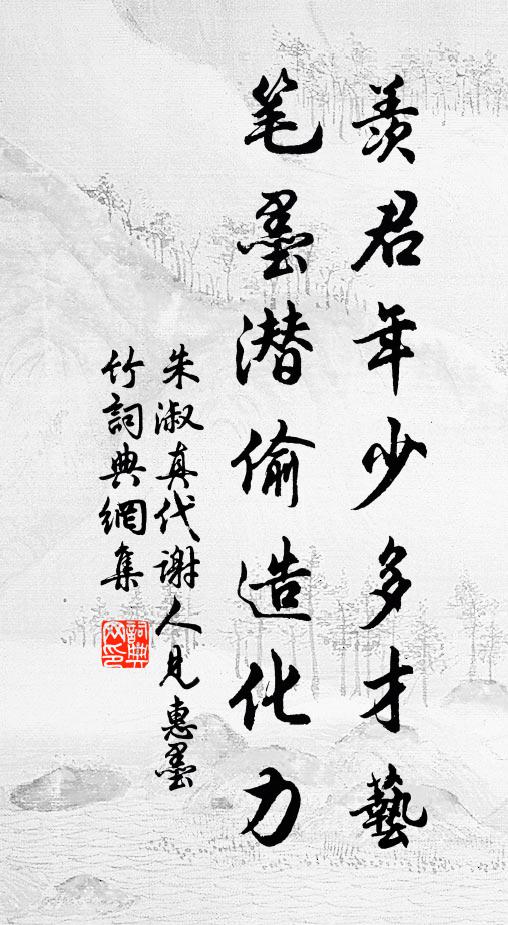 羨君年少多才藝
笔墨潛偷造化力
朱淑真代謝人見惠墨
竹詞典網集
詞典网印